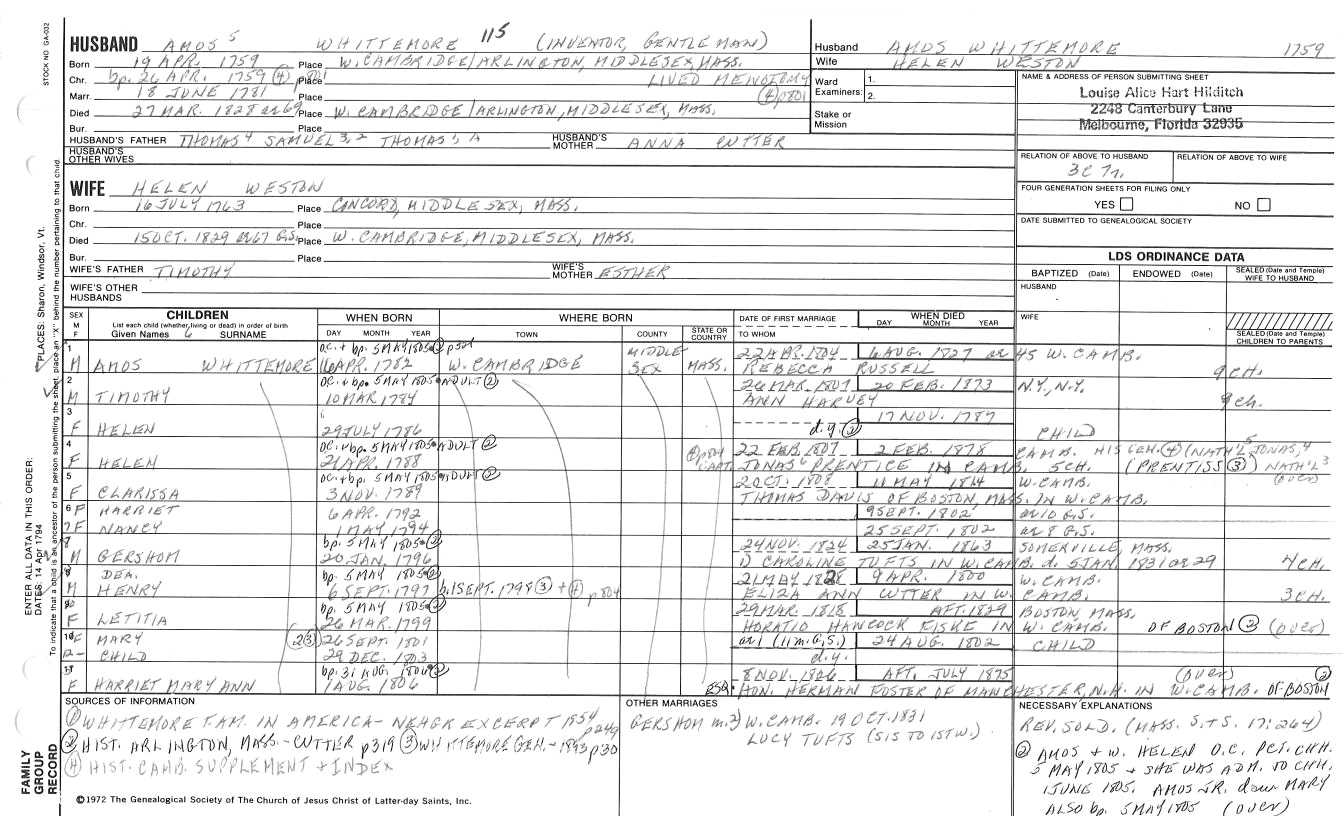 STOCK NO. GA-032
HUSBAND AMOS 5 WHITTEMORE 115 (INVENTOR, GENTLEMAN)
Born 19 APR. 1759 Place W. CAMBRIDGE/ARLINGTON, MIDDLESEX, MASS.
Chr. bp. 26 APR. 1759 (4) p801 Place LIVED MENOTOMY
Marr. 18 JUNE 1781 Place (4) p801
Died 27 MAR. 1828 ae 69 Place W. CAMBRIDGE/ARLINGTON, MIDDLESEX, MASS.
Bur. Place
HUSBAND'S FATHER THOMAS 4 SAMUEL 3,2 THOMAS 1, A HUSBAND'S MOTHER ANNA CUTTER
HUSBAND'S OTHER WIVES
WIFE HELEN WESTON
Born 16 JULY 1763 Place CONCORD, MIDDLESEX, MASS.
Chr. Place
Died 15 OCT. 1829 ae 67 G.S. Place W. CAMBRIDGE, MIDDLESEX, MASS.
Bur. Place
WIFE'S FATHER TIMOTHY WIFE'S MOTHER ESTHER
WIFE'S OTHER HUSBANDS
Husband AMOS WHITTEMORE 1759
Wife HELEN WESTON
Ward Examiners: 1. 2.
Stake or Mission
NAME & ADDRESS OF PERSON SUBMITTING SHEET
Louise Alice Hart Hilditch
2248 Canterbury Lane
Melbourne, Florida 32935
RELATION OF ABOVE TO HUSBAND RELATION OF ABOVE TO WIFE
3C 7r.
FOUR GENERATION SHEETS FOR FILING ONLY
YES NO
DATE SUBMITTED TO GENEALOGICAL SOCIETY
LDS ORDINANCE DATA
BAPTIZED (Date) ENDOWED (Date) SEALED (Date and Temple) WIFE TO HUSBAND
HUSBAND
WIFE
SEALED (Date and Temple) CHILDREN TO PARENTS
SEX M F CHILDREN WHEN BORN WHERE BORN DATE OF FIRST MARRIAGE WHEN DIED
List each child (whether living or dead) in order of birth
Given Names SURNAME DAY MONTH YEAR TOWN COUNTY STATE OR COUNTRY TO WHOM DAY MONTH YEAR
1 O.C. + bp. 5 MAY 1805 (2) 22 APR. 1804 6 AUG. 1827 ae 45 W. CAMB.
M AMOS WHITTEMORE 16 APR. 1782 W. CAMBRIDGE MIDDLESEX MASS. REBECCA RUSSELL 9 CH.
2 O.C. + bp. 5 MAY 1805 ADULT (2) 26 MAR. 1807 20 FEB. 1873 N.Y., N.Y.
M TIMOTHY 10 MAR 1784 ANN HARVEY 9 ch.
3 17 NOV. 1787
F HELEN 29 JULY 1786 d.y. (2) CHILD
4 O.C. + bp. 5 MAY 1805 ADULT (2) 22 FEB. 1807 2 FEB. 1878 CAMB. HIS GEN. (4) (NATH'L 5 JONAS, 4
F HELEN 21 APR. 1788 (4) p804 CAPT. JONAS 6 PRENTICE IN CAMB. 5CH. (PRENTISS (3)) NATH'L 3
5 O.C. + bp. 5 MAY 1805 ADULT (2) 2 OCT. 1808 11 MAY 1814 W. CAMB. (OVER)
F CLARISSA 3 NOV. 1789 THOMAS DAVIS OF BOSTON, MASS. IN W. CAMB.
6 F HARRIET 6 APR. 1792 9 SEPT. 1802 ae 10 G.S.
7 F NANCY 1 MAY 1794 25 SEPT. 1802 ae 8 G.S.
bp. 5 MAY 1805 (2) 24 NOV. 1824 25 JAN. 1863 SOMERVILLE, MASS.
M GERSHOM 20 JAN. 1796 1) CAROLINE TUFTS IN W. CAMB. d. 5 JAN. 1831 ae 29 4 CH.
DEA. bp. 5 MAY 1805 (2) 21 MAY 1828 9 APR. 1860 W. CAMB.
M HENRY 6 SEPT. 1797 b. 1 SEPT. 1798 (3) + (4) p804 ELIZA ANN CUTTER IN W. CAMB. 3 CH.
bp. 5 MAY 1805 (2) 29 MAR. 1818 AFT. 1829 BOSTON MASS.
F LETITIA 26 MAR. 1799 HORATIO HANCOCK FISKE IN W. CAMB. OF BOSTON (2) (OVER)
F MARY (2)(3) 26 SEPT. 1801 ae 1 (11 m. G.S.) 24 AUG. 1802 CHILD
12 - CHILD 29 DEC. 1803 d.y.
bp. 31 AUG. 1806 (2) 8 NOV. 1826 AFT. JULY 1875 (OVER) (2)
F HARRIET MARY ANN 1 AUG. 1806 HON. HERMAN FOSTER OF MANCHESTER, N.H. IN W. CAMB. OF BOSTON
SOURCES OF INFORMATION
(1) WHITTEMORE FAM. IN AMERICA - NEHGR EXCERPT 1954 p249
(2) HIST. ARLINGTON, MASS. - CUTTER p319 (3) WHITTEMORE GEN. - 1893 p30
(4) HIST. CAMB. SUPPLEMENT + INDEX
©1972 The Genealogical Society of The Church of Jesus Christ of Latter-day Saints, Inc.
OTHER MARRIAGES
GERSHOM m. 2) W. CAMB. 19 OCT. 1831
LUCY TUFTS (SIS TO 1ST W.)
NECESSARY EXPLANATIONS
REV. SOLD. (MASS. S.+S. 17:264)
(2) AMOS + W. HELEN O.C. PCT. CHH.
5 MAY 1805 + SHE WAS ADM. TO CHH.
1 JUNE 1805. AMOS JR. dau MARY
ALSO bp. 5 MAY 1805 (OVER)
ENTER ALL DATA IN THIS ORDER:
DATES: 14 Apr 1794
PLACES: Sharon, Windsor, Vt.
To indicate that a child is an ancestor of the person submitting the sheet, place an "X" behind the number pertaining to that child.
FAMILY GROUP RECORD